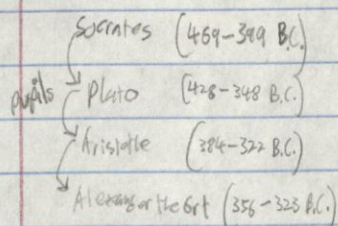 Socrates (469-399 B.C.)
pupils Plato (428-348 B.C.)
Aristotle (384-322 B.C.)
Alexander the Grt (356-323 B.C.)